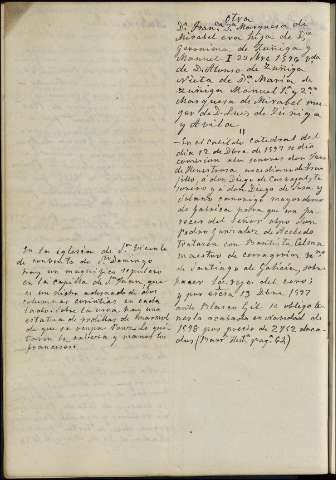 Otra
Dª Franca 3ª Marquesa de
Mirabel era hija de Dª
Geronima de Zuñiga y
Manuel I
de D. Alonso de Zuñiga
Nieta de Dª Maria de
Zuñiga Manuel Pl y 2ª
Marquesa de Mirabel mu-
ger de D. Luis de Zuñiga
y Avila.
"
— En el Cabildo catedral del
dia 12 de Dbre de 1597 se dio
comision a los señores don
de Henestrosa arcediano de Tru-
jillo, a don Diego de Carvajal te-
sorero y a don Diego de
canonigo mayordomo
de fabrica para que con pa-
recer del señor obpo don
Pedro Gonzalez de Acebedo
tratasen con Bautista Celma
maestro de
de Santiago de Galicia, sobre
hacer las rejas del coro;
y por escra 13 Dbre 1597
ante Blas Gil se obligó te-
nerla acabada en Navidad de
1598 por precio de 2752 duca-
dos pag. 42)
En la iglesia de Sn Vicente
de convento de Sto Domingo
hay un magnifico sepulcro
en la capilla de Sn Juan, que
es un nicho adornado de dos
columnas corintias en cada
lado. Sobre la urna, hay una
estatua de rodillas de marmol
de que se ocupa Ponz. Le qui-
taron la cabeza y manos los
franceses.